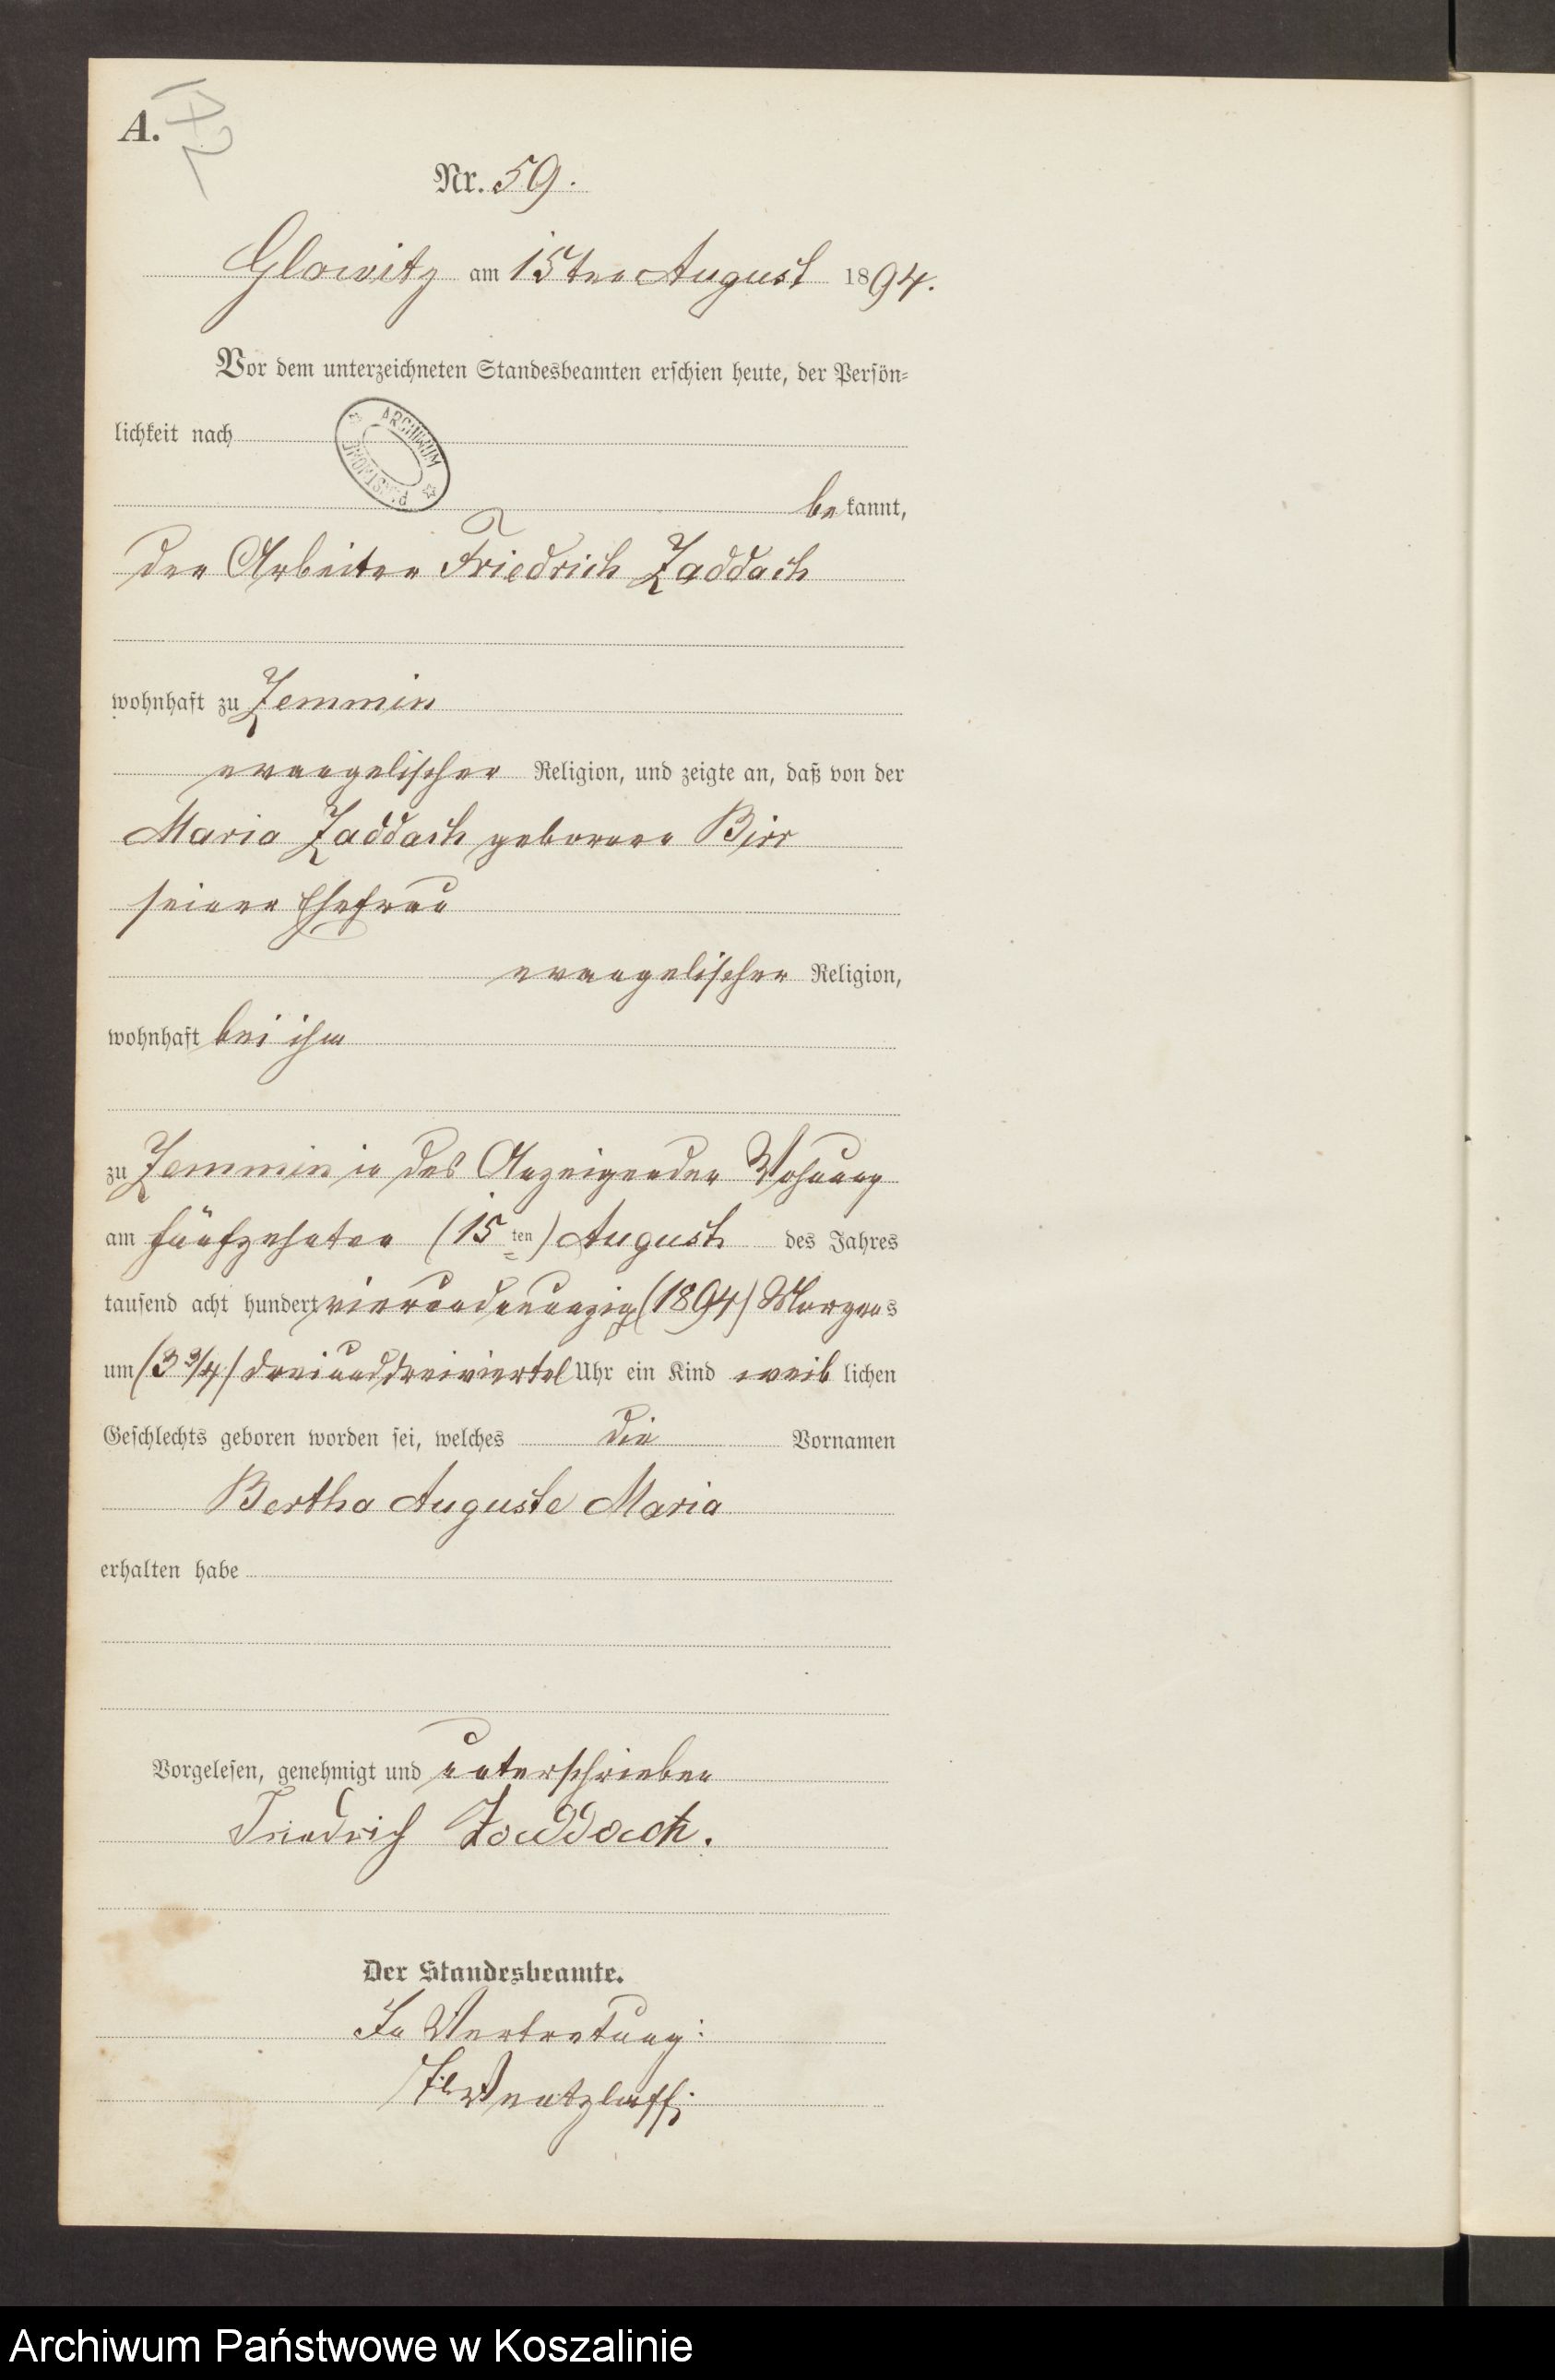 A.
Nr. 59.
Glowitz am 15ten August 1894.
Vor dem unterzeichneten Standesbeamten erschien heute, der Persön-
lichkeit nach
ARCHIWUM
bekannt,
der Arbeiter Friedrich Zaddach
wohnhaft zu Zemmin
evangelischer Religion, und zeigte an, daß von der
Maria Zaddach geborene Birr
seiner Ehefrau
evangelischer Religion,
wohnhaft bei ihm
zu Zemmin in des Anzeigenden Wohnung
am fünfzehnten (15ten) August des Jahres
tausend acht hundert vierundneunzig (1894) Morgens
um (3 3/4) dreiunddreiviertel Uhr ein Kind weiblichen
Geschlechts geboren worden sei, welches die Vornamen
Bertha Auguste Maria
erhalten habe
Vorgelesen, genehmigt und unterschrieben
Friedrich Zaddach.
Der Standesbeamte.
In Vertretung:
Archiwum Państwowe w Koszalinie